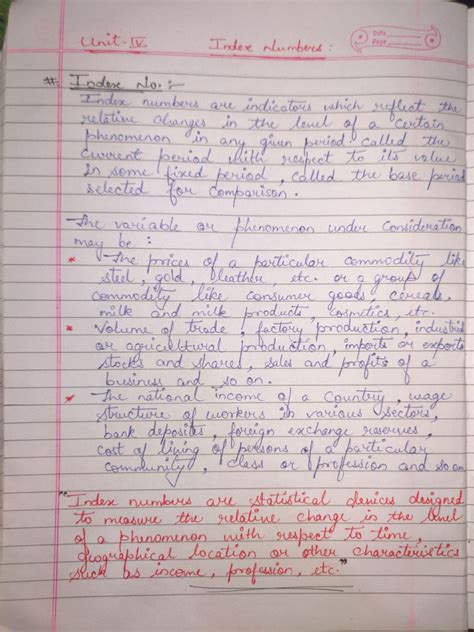 Date
Page
Unit-IV Index Numbers:
# Index No.:-
Index numbers are indicators which reflect the
relative changes in the level of a certain
phenomenon in any given period called the
current period with respect to its value
in some fixed period, called the base period
selected for comparison.
The variable or phenomenon under consideration
may be:
* The prices of a particular commodity like
steel, gold, leather, etc. or a group of
commodity like consumer goods, cereals,
milk and milk products, cosmetics, etc.
* Volume of trade, factory production, industrial
or agricultural production, imports or exports
stocks and shares, sales and profits of a
business and so on.
* The national income of a Country, wage
structure of workers in various sectors,
bank deposites, foreign exchange reserves,
cost of living of persons of a particular
community, class or profession and so on
"Index numbers are statistical devices designed
to measure the relative change in the level
of a phenomenon with respect to time,
geographical location or other characteristics
such as income, profession, etc."